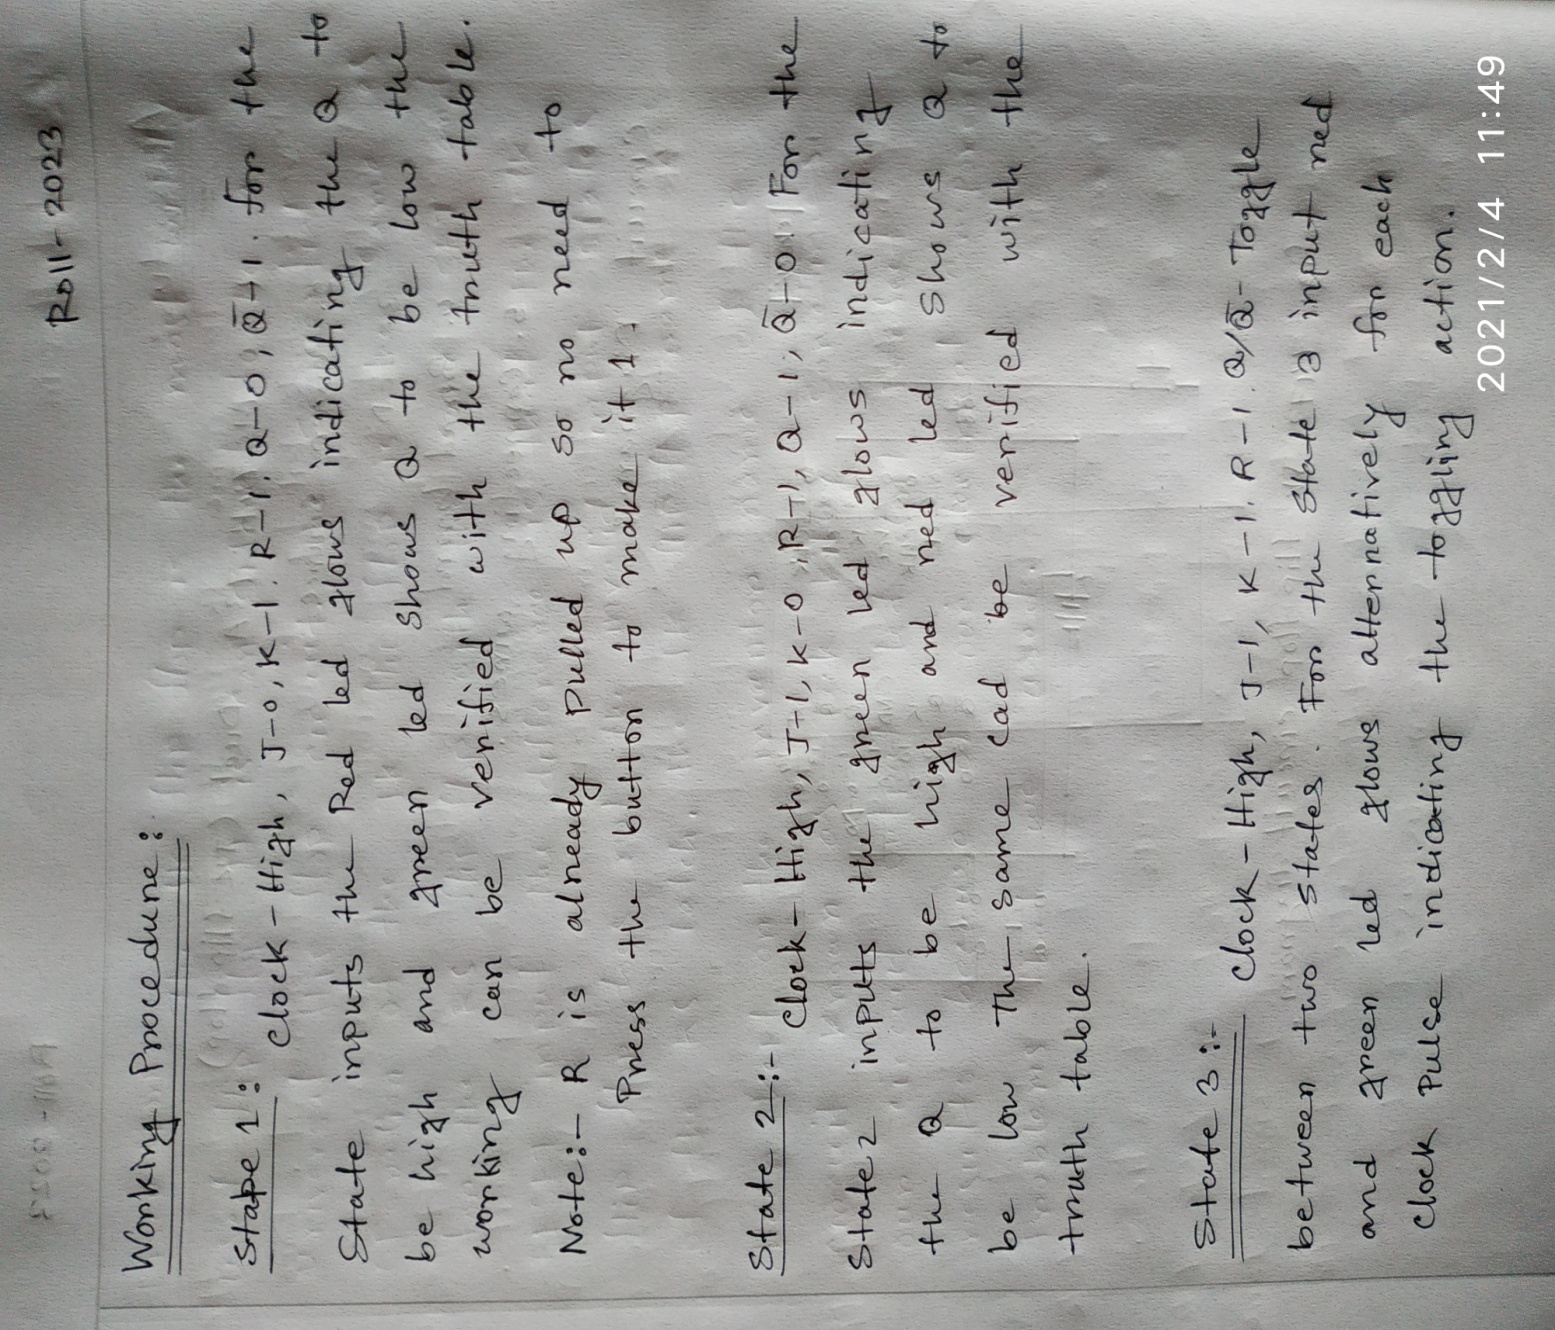 Roll- 2023
Working Procedure:
Stape 1: Clock - High, J-0, K-1, R-1, Q-0, Q̅-1. for the
State inputs the Red led glows indicating the Q to
be high and green led shows Q to be low the
working can be verified with the truth table.
Note:- R is already pulled up so no need to
Press the button to make it 1.
State 2:- Clock - High, J-1, K-0, R-1, Q-1, Q̅-0. For the
State 2 inputs the green led glows indicating
the Q to be high and red led shows Q to
be low The same cad be verified with the
truth table.
State 3:- Clock - High, J-1, K-1, R-1. Q/Q̅- Toggle
between two states. For the State 3 input red
and green led glows alternatively for each
Clock Pulse indicating the toggling action.
2021/2/4 11:49